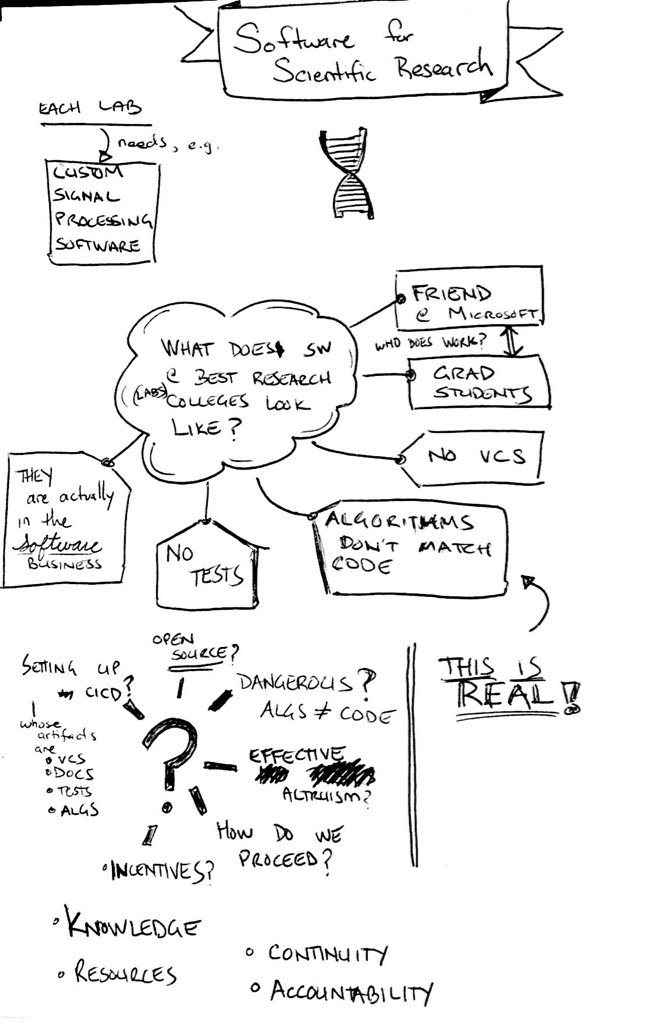 Software for
Scientific Research
EACH LAB
needs, e.g.
CUSTOM
SIGNAL
PROCESSING
SOFTWARE
FRIEND
@ MICROSOFT
WHO DOES WORK?
GRAD
STUDENTS
WHAT DOES SW
@ BEST RESEARCH
(LABS) COLLEGES LOOK
LIKE?
NO VCS
THEY
are actually
in the
Software
BUSINESS
NO
TESTS
ALGORITHMS
DON'T MATCH
CODE
THIS IS
REAL!
OPEN
SOURCE?
SETTING UP
CICD?
whose
artifacts
are
• VCS
• DOCS
• TESTS
• ALGS
DANGEROUS?
ALGS ≠ CODE
EFFECTIVE
ALTRUISM?
HOW DO WE
PROCEED?
• INCENTIVES?
• KNOWLEDGE
• RESOURCES
• CONTINUITY
• ACCOUNTABILITY